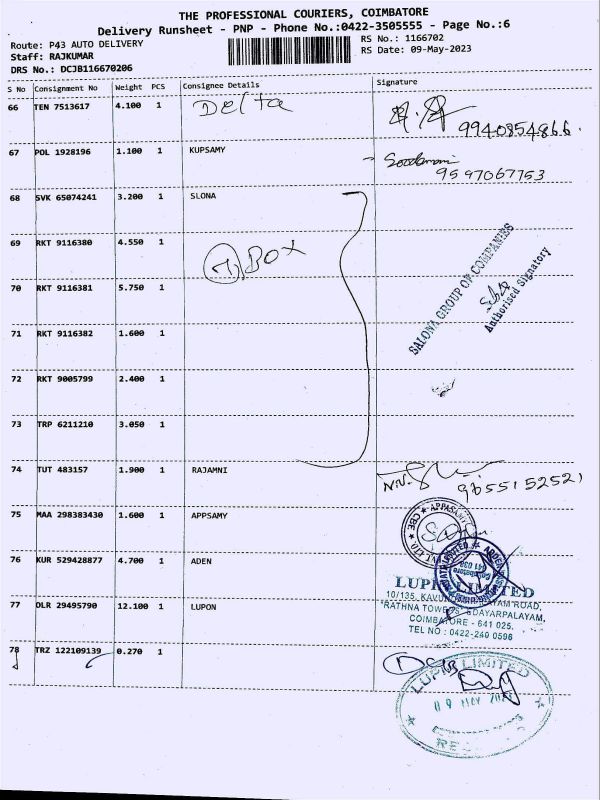 THE PROFESSIONAL COURIERS, COIMBATORE
Delivery Runsheet - PNP - Phone No.:0422-3505555 - Page No.:6
Route: P43 AUTO DELIVERY
RS No.: 1166702
Staff: RAJKUMAR
RS Date: 09-May-2023
DRS No.: DCJB116670206
S No Consignment No Weight PCS Consignee Details Signature
66 TEN 7513617 4.100 1 Delta
9940354866.
67 POL 1928196 1.100 1 KUPSAMY
9597067753
68 SVK 65074241 3.200 1 SLONA
69 RKT 9116380 4.550 1
Box
70 RKT 9116381 5.750 1
SALONA GROUP OF COMPANIES
Authorised Signatory
71 RKT 9116382 1.600 1
72 RKT 9005799 2.400 1
73 TRP 6211210 3.050 1
74 TUT 483157 1.900 1 RAJAMNI
9655152521
75 MAA 298383430 1.600 1 APPSAMY
76 KUR 529428877 4.700 1 ADEN
LUPIN LIMITED
10/135,
ROAD,
77 DLR 29495790 12.100 1 LUPON
"RATHNA TOWERS" UDAYARPALAYAM,
COIMBATORE - 641 025.
TEL NO : 0422-240 0596
78 TRZ 122109139 0.270 1
LUPIN LIMITED
09 MAY